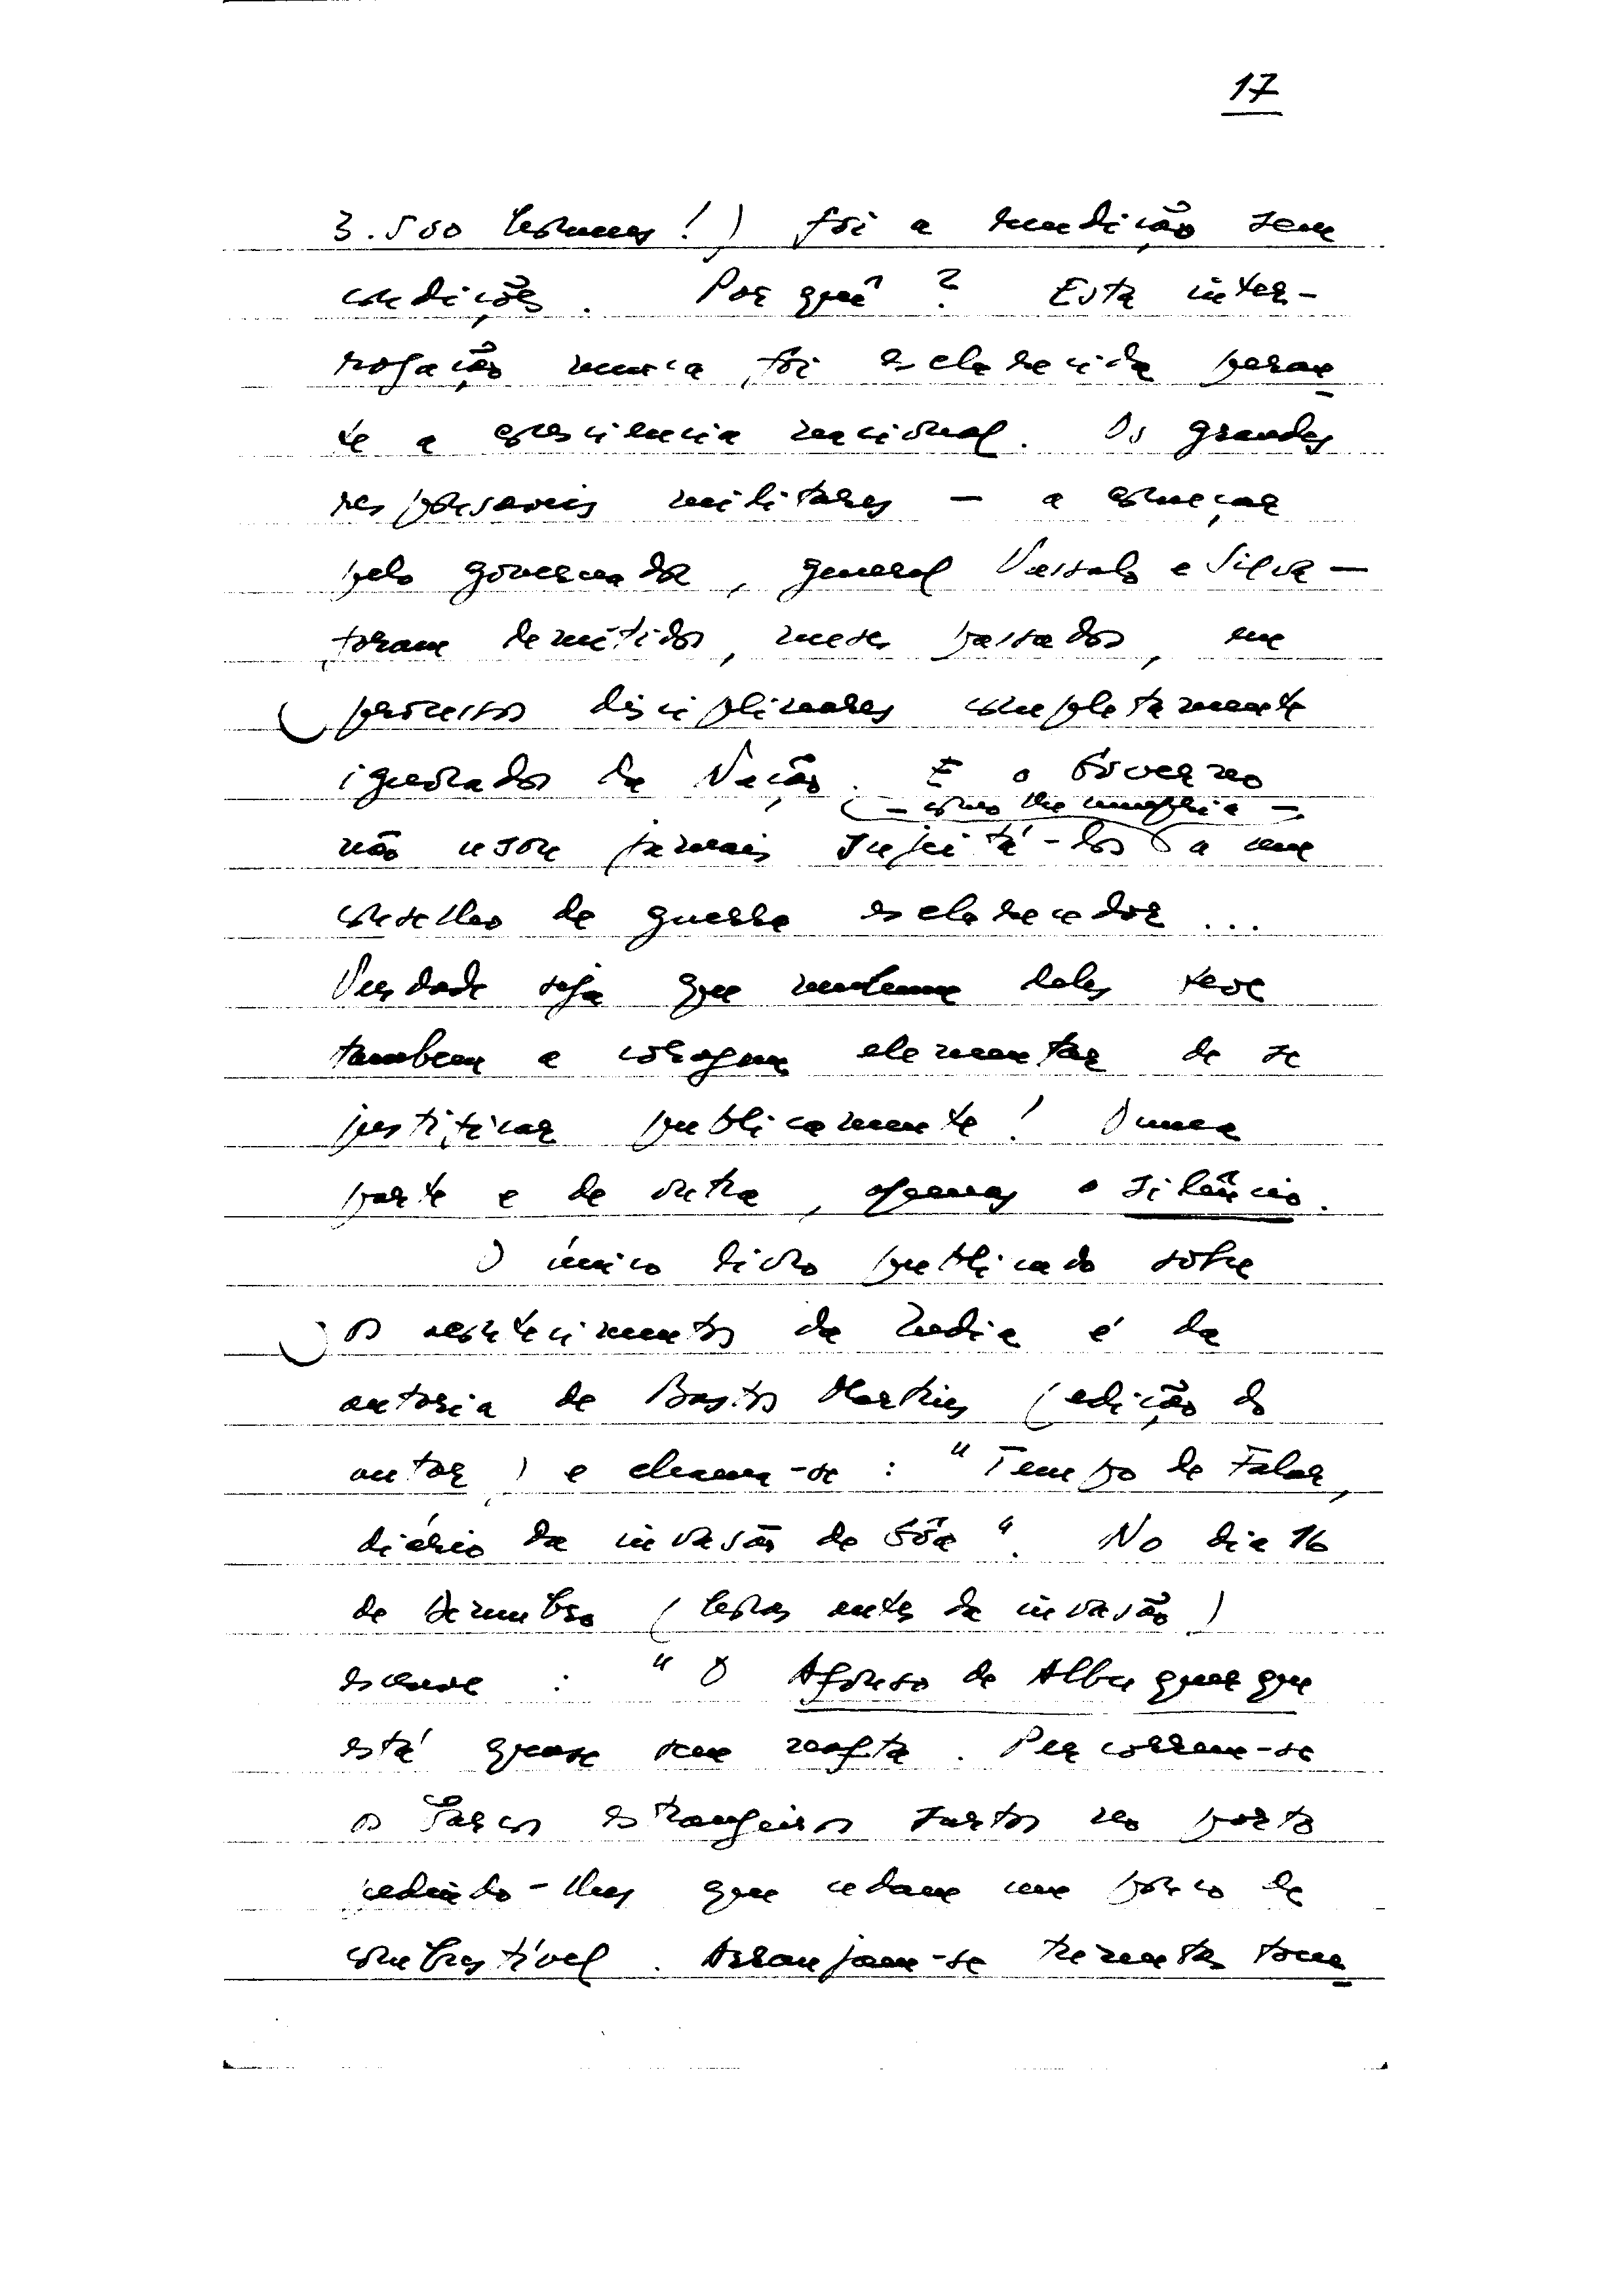 17
3.500 homens!) foi a rendição sem
condições. Porquê? Esta inter-
rogação nunca foi esclarecida peran
te a consciencia nacional. Os grandes
responsaveis militares — a começar
pelo governador, general Vassalo e Silva —
foram demitidos, meses passados, em
processos disciplinares completamente
ignorados da Nação. E o Governo
— como lhe cumpria —
não usou jamais sujeitá-los a um
conselho de guerra esclarecedor...
Verdade seja que nenhum deles teve
tambem a coragem elementar de se
justificar publicamente! Duma
parte e de outra, apenas o silêncio.
O único livro publicado sobre
os acontecimentos da India é da
autoria de Bastos Martins (edição do
autor) e chama-se: "Tempo de Falar,
diário da invasão de Gôa". No dia 16
de Dezembro (horas antes da invasão)
escreve: "O Afonso de Albuquerque
está quase sem nafta. Percorrem-se
os barcos estrangeiros surtos no porto
pedindo-lhes que cedam um pouco de
combustível. Arranjam-se trezentas tone